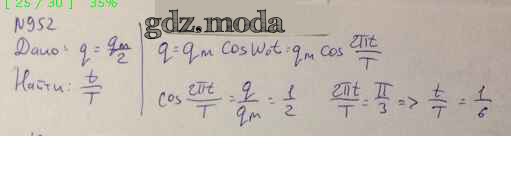 [ 25 / 30 ] 35%
gdz.moda
N952
Дано: q = qm/2
Найти: t/T
q = qm cos ω₀t = qm cos 2πt/T
cos 2πt/T = q/qm = 1/2 2πt/T = π/3 => t/T = 1/6